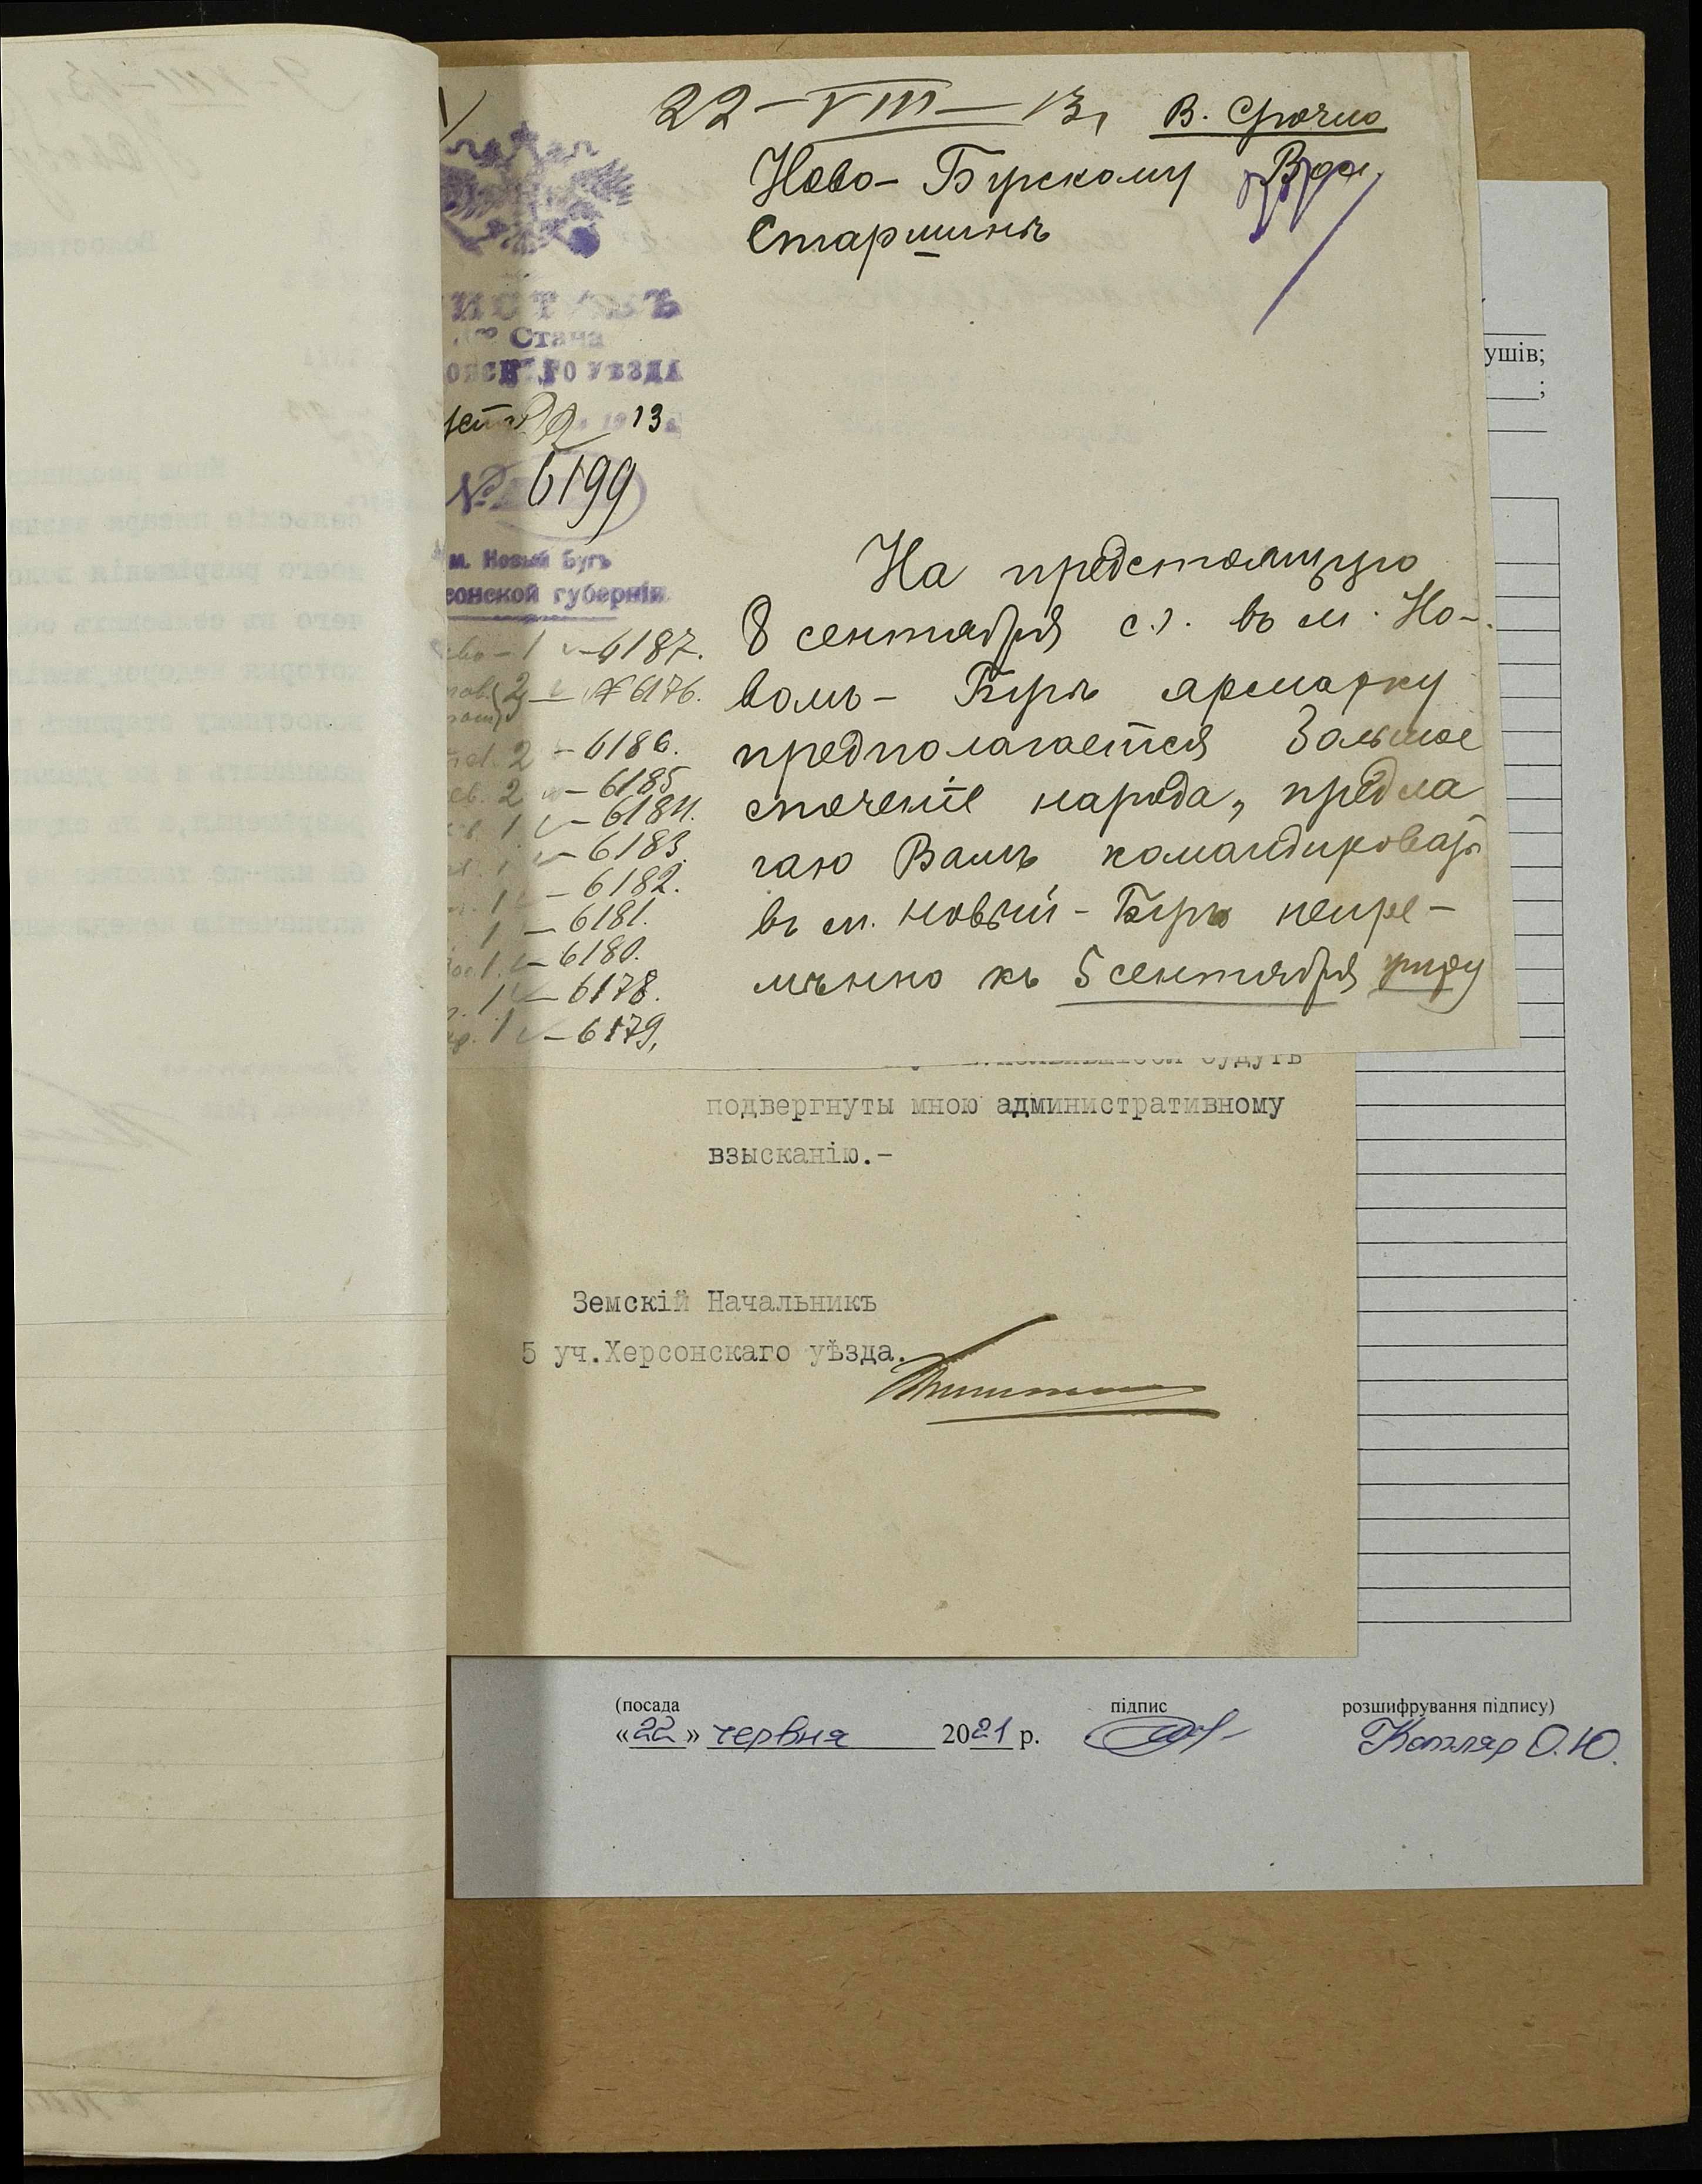 22-VIII-13, В. Срочно
Ново-Бугскому Вол.
Старшинѣ
Стана
УѢЗДА
22 13
№ 6199
м. Новый Бугъ
губерніи
1 - 6187.
2 - № 6176.
2 - 6186.
2 - 6185
1 - 6184.
1 - 6183.
1 - 6182.
1 - 6181.
1 - 6180.
1 - 6178.
1 - 6179.
На предстоящую
8 сентября с.г. въ м. Но-
вомъ-Бугѣ ярмарку
предполагается большое
стеченіе народа, предла
гаю Вамъ командировать
въ м. Новый-Бугъ непре-
мѣнно къ 5 сентября утру
будутъ
подвергнуты мною административному
взысканію.-
Земскій Начальникъ
5 уч.Херсонскаго уѣзда.
ушів;
;
(посада підпис розшифрування підпису)
«22» червня 2021 р. Котляр О.Ю.